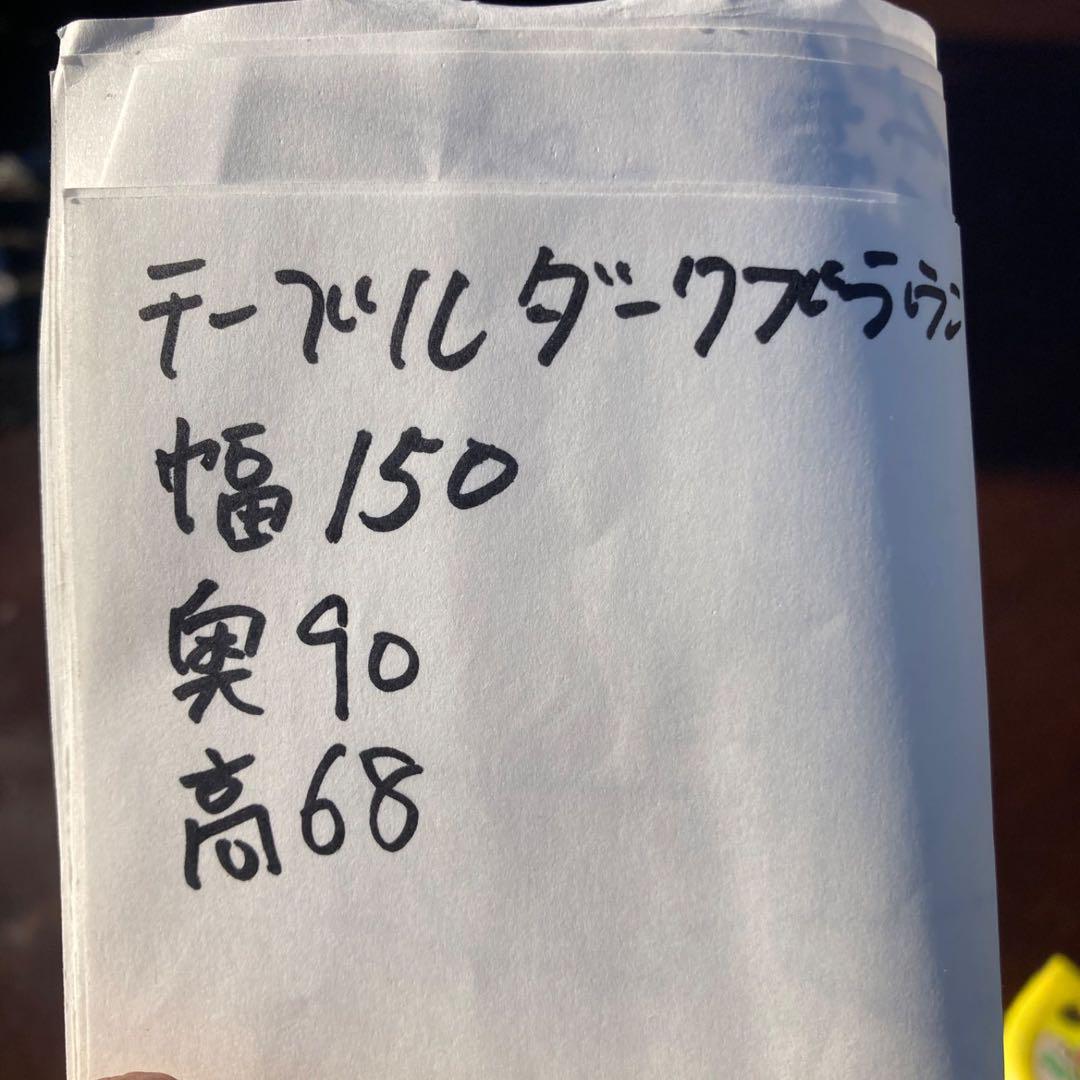 テーブル ダークブラウン
幅 150
奥 90
高 68